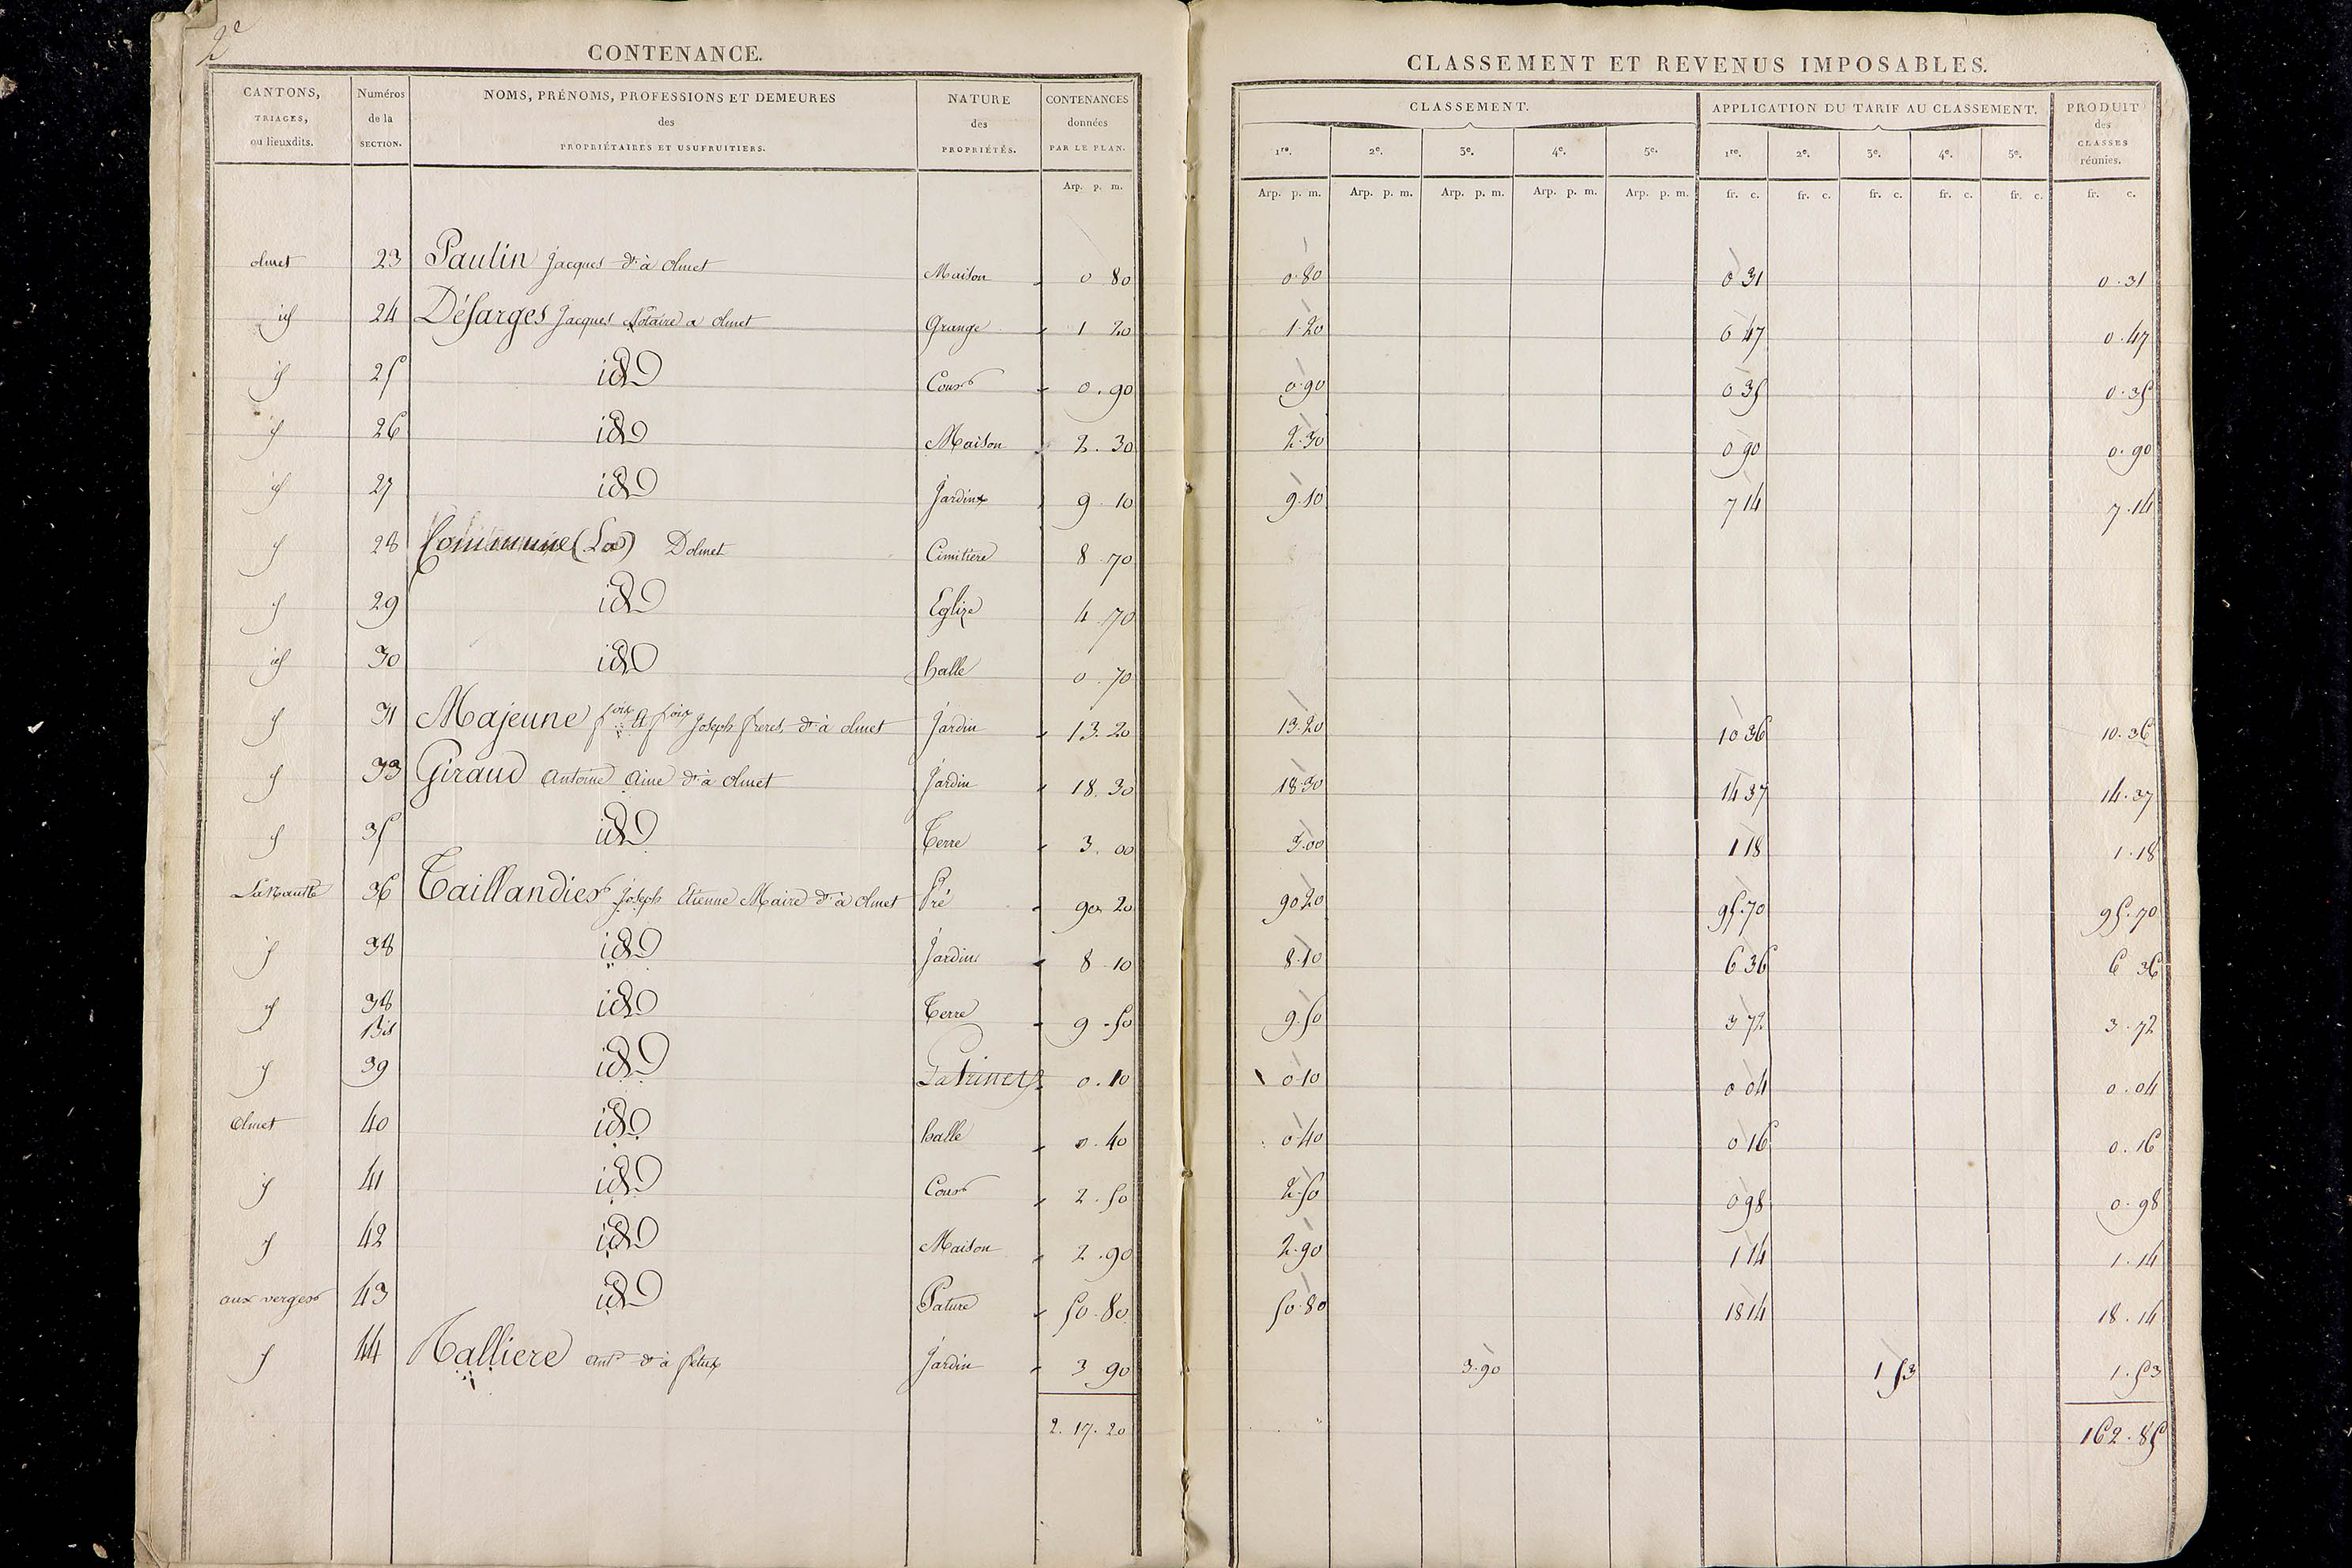 2e
CONTENANCE.
CANTONS, TRIAGES, ou lieuxdits. | Numéros de la SECTION. | NOMS, PRÉNOMS, PROFESSIONS ET DEMEURES des PROPRIÉTAIRES ET USUFRUITIERS. | NATURE des PROPRIÉTÉS. | CONTENANCES données PAR LE PLAN.
Arp. p. m.
CLASSEMENT ET REVENUS IMPOSABLES.
CLASSEMENT. | APPLICATION DU TARIF AU CLASSEMENT. | PRODUIT des CLASSES réunies.
1re. 2e. 3e. 4e. 5e. 1re. 2e. 3e. 4e. 5e.
Arp. p. m. Arp. p. m. Arp. p. m. Arp. p. m. Arp. p. m. fr. c. fr. c. fr. c. fr. c. fr. c. fr. c.
olmet 23 Paulin Jacques dt à olmet Maison 0 80 0.80 0 31 0.31
id 24 Désarges Jacques Notaire a olmet Grange 1 20 1.20 0 47 0.47
id 25 id Cour 0.90 0.90 0 35 0.35
id 26 id Maison 2.30 2.30 0 90 0.90
id 27 id Jardin 9 10 9.10 7 14 7.14
id 28 Commune (La) Dolmet Cimitiere 8 70
id 29 id Eglize 4 70
id 30 id halle 0.70
id 31 Majeune fois et fois Joseph freres dt à olmet Jardin 13.20 13.20 10 36 10.36
id 33 Giraud Antoine Aine dt à olmet Jardin 18.30 18.30 14 37 14.37
id 35 id Terre 3.00 3.00 1 18 1.18
36 Taillandier Joseph Etienne Maire dt à olmet Pré 90 20 90 20 95.70 95.70
id 38 id Jardin 8 10 8.10 6 36 6 36
id 38 Bis id Terre 9.50 9.50 3 72 3.72
id 39 id Latrines 0.10 0 10 0 04 0.04
Olmet 40 id halle 0.40 0 40 0 16 0.16
id 41 id Cour 2.50 2.50 0 98 0.98
id 42 id Maison 2.90 2.90 1 14 1.14
aux verger 43 id Pature 50.80 50.80 18 14 18.14
id 44 Ralliere ant. dt à Jardin 3 90 3.90 1 53 1.53
2.17.20 162.85